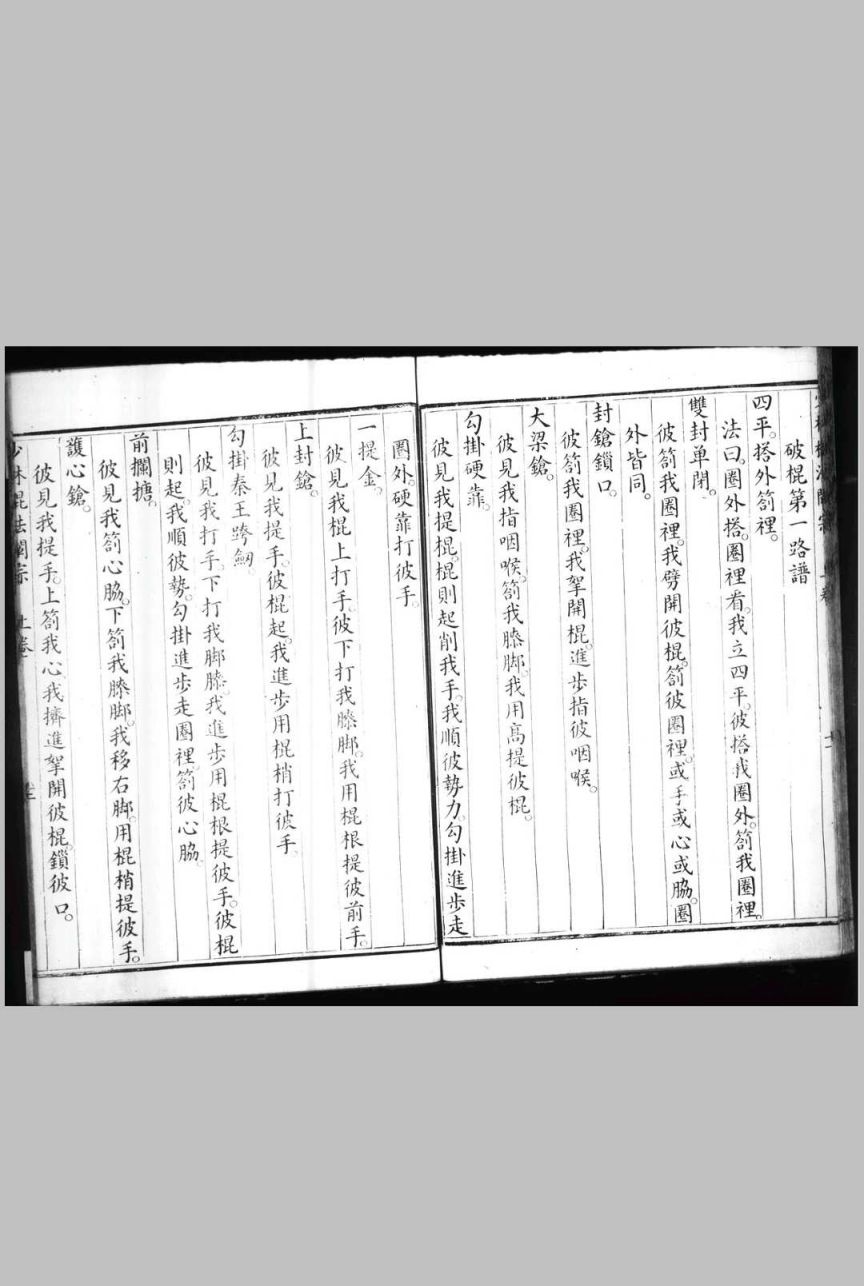 破棍第一路譜
四平。搭外劄裡。
法曰。圈外搭。圈裡看。我立四平。彼搭我圈外。劄我圈裡。
雙封单閉。
彼劄我圈裡。我劈開彼棍。劄彼圈裡。或手或心或脇。圈
外皆同。
封鎗鎖口。
彼劄我圈裡。我挐開棍。進步指彼咽喉。
大梁鎗。
彼見我指咽喉。劄我膝脚。我用高提彼棍。
勾掛硬靠。
彼見我提棍。棍則起削我手。我順彼勢力。勾掛進步走
圈外。硬靠打彼手。
一提金。
彼見我棍上打手。彼下打我膝脚。我用棍根提彼前手。
上封鎗。
彼見我提手。彼棍起。我進步用棍梢打彼手。
勾掛秦王跨劒。
彼見我打手。下打我脚膝。我進步用棍根提彼手。彼棍
則起。我順彼勢。勾掛進步走圈裡。劄彼心脇。
前攔搪。
彼見我劄心脇。下劄我膝脚。我移右脚。用棍梢提彼手。
護心鎗。
彼見我提手。上劄我心。我擠進挐開彼棍。鎖彼口。
少林棍法闡宗 上卷